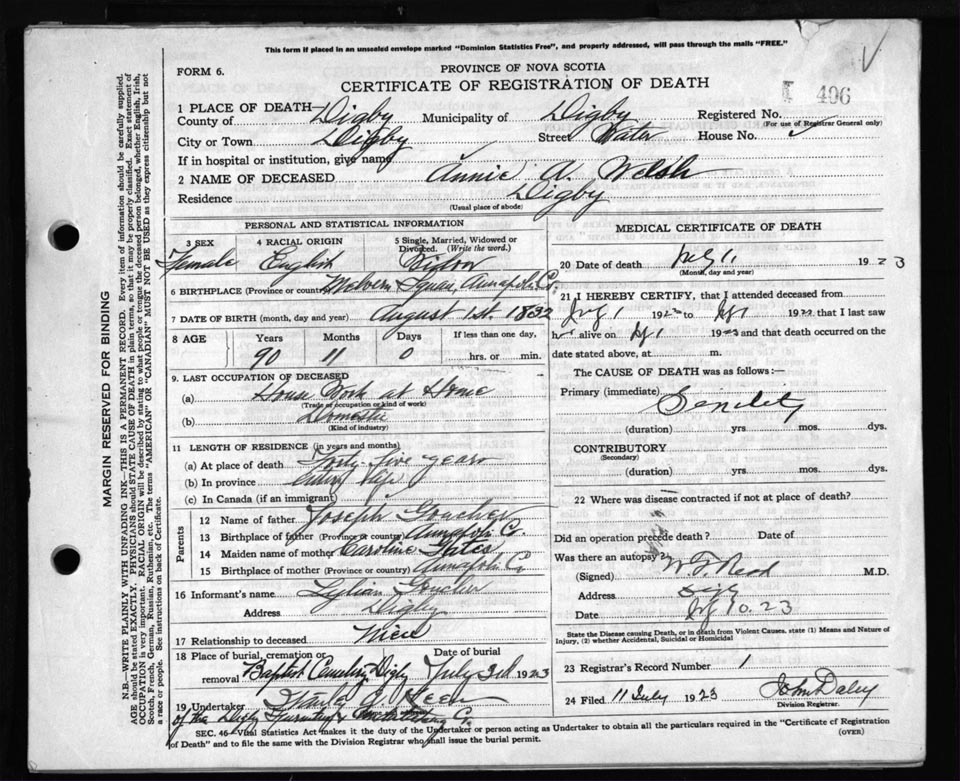 This form if placed in an unsealed envelope marked "Dominion Statistics Free", and properly addressed, will pass through the mails "FREE."
FORM 6.
PROVINCE OF NOVA SCOTIA
CERTIFICATE OF REGISTRATION OF DEATH
406
1 PLACE OF DEATH—
County of Digby Municipality of Digby Registered No.
(For use of Registrar General only)
City or Town Digby Street Water House No.
If in hospital or institution, give name
2 NAME OF DECEASED Annie A. Welsh
Residence Digby
(Usual place of abode)
PERSONAL AND STATISTICAL INFORMATION
3 SEX 4 RACIAL ORIGIN 5 Single, Married, Widowed or Divorced. (Write the word.)
Female English Widow
6 BIRTHPLACE (Province or country) Melvern Square Annapolis Co.
7 DATE OF BIRTH (month, day and year) August 1st. 1832
8 AGE Years Months Days If less than one day,
90 11 0 hrs. or min.
9. LAST OCCUPATION OF DECEASED
(a) House Work at Home
(Trade or occupation or kind of work)
(b) Domestic
(Kind of industry)
11 LENGTH OF RESIDENCE (in years and months)
(a) At place of death Forty-five years
(b) In province
(c) In Canada (if an immigrant)
Parents
12 Name of father Joseph Goucher
13 Birthplace of father (Province or country) Annapolis Co.
14 Maiden name of mother Caroline Gates
15 Birthplace of mother (Province or country) Annapolis Co.
16 Informant's name Goucher
Address Digby
17 Relationship to deceased Niece
18 Place of burial, cremation or removal Date of burial
Baptist Cemetery Digby July 3rd 1923
19 Undertaker
of the Digby Furniture &
MEDICAL CERTIFICATE OF DEATH
20 Date of death July 1 1923
(Month, day and year)
21 I HEREBY CERTIFY, that I attended deceased from
July 1 1923 to July 1 1923 that I last saw
her alive on July 1 1923 and that death occurred on
date stated above, at m.
The CAUSE OF DEATH was as follows:—
Primary (immediate) Senility
(duration) yrs. mos. dys.
CONTRIBUTORY
(Secondary)
(duration) yrs. mos. dys.
22 Where was disease contracted if not at place of death?
Did an operation precede death? Date of
Was there an autopsy?
(Signed) M.D.
Address Digby
Date July 10. 23
State the Disease causing Death, or in death from Violent Causes, state (1) Means and Nature of Injury, (2) whether Accidental, Suicidal or Homicidal
23 Registrar's Record Number 1
24 Filed 11 July 1923 John Daley
Division Registrar.
SEC. 46—Vital Statistics Act makes it the duty of the Undertaker or person acting as Undertaker to obtain all the particulars required in the "Certificate of Registration
of Death" and to file the same with the Division Registrar who shall issue the burial permit.
(OVER)
MARGIN RESERVED FOR BINDING
N.B.—WRITE PLAINLY WITH UNFADING INK—THIS IS A PERMANENT RECORD. Every item of information should be carefully supplied.
AGE should be stated EXACTLY. PHYSICIANS should STATE CAUSE OF DEATH in plain terms, so that it may be properly classified. Exact statement of
OCCUPATION is very important. RACIAL ORIGIN will be described by stating to what people or tongue the deceased person belonged, whether English, Irish,
Scotch, French, German, Russian, Ruthenian, etc. The terms "AMERICAN" or "CANADIAN" MUST NOT BE USED as they express citizenship but not
a race or people. See instructions on back of Certificate.